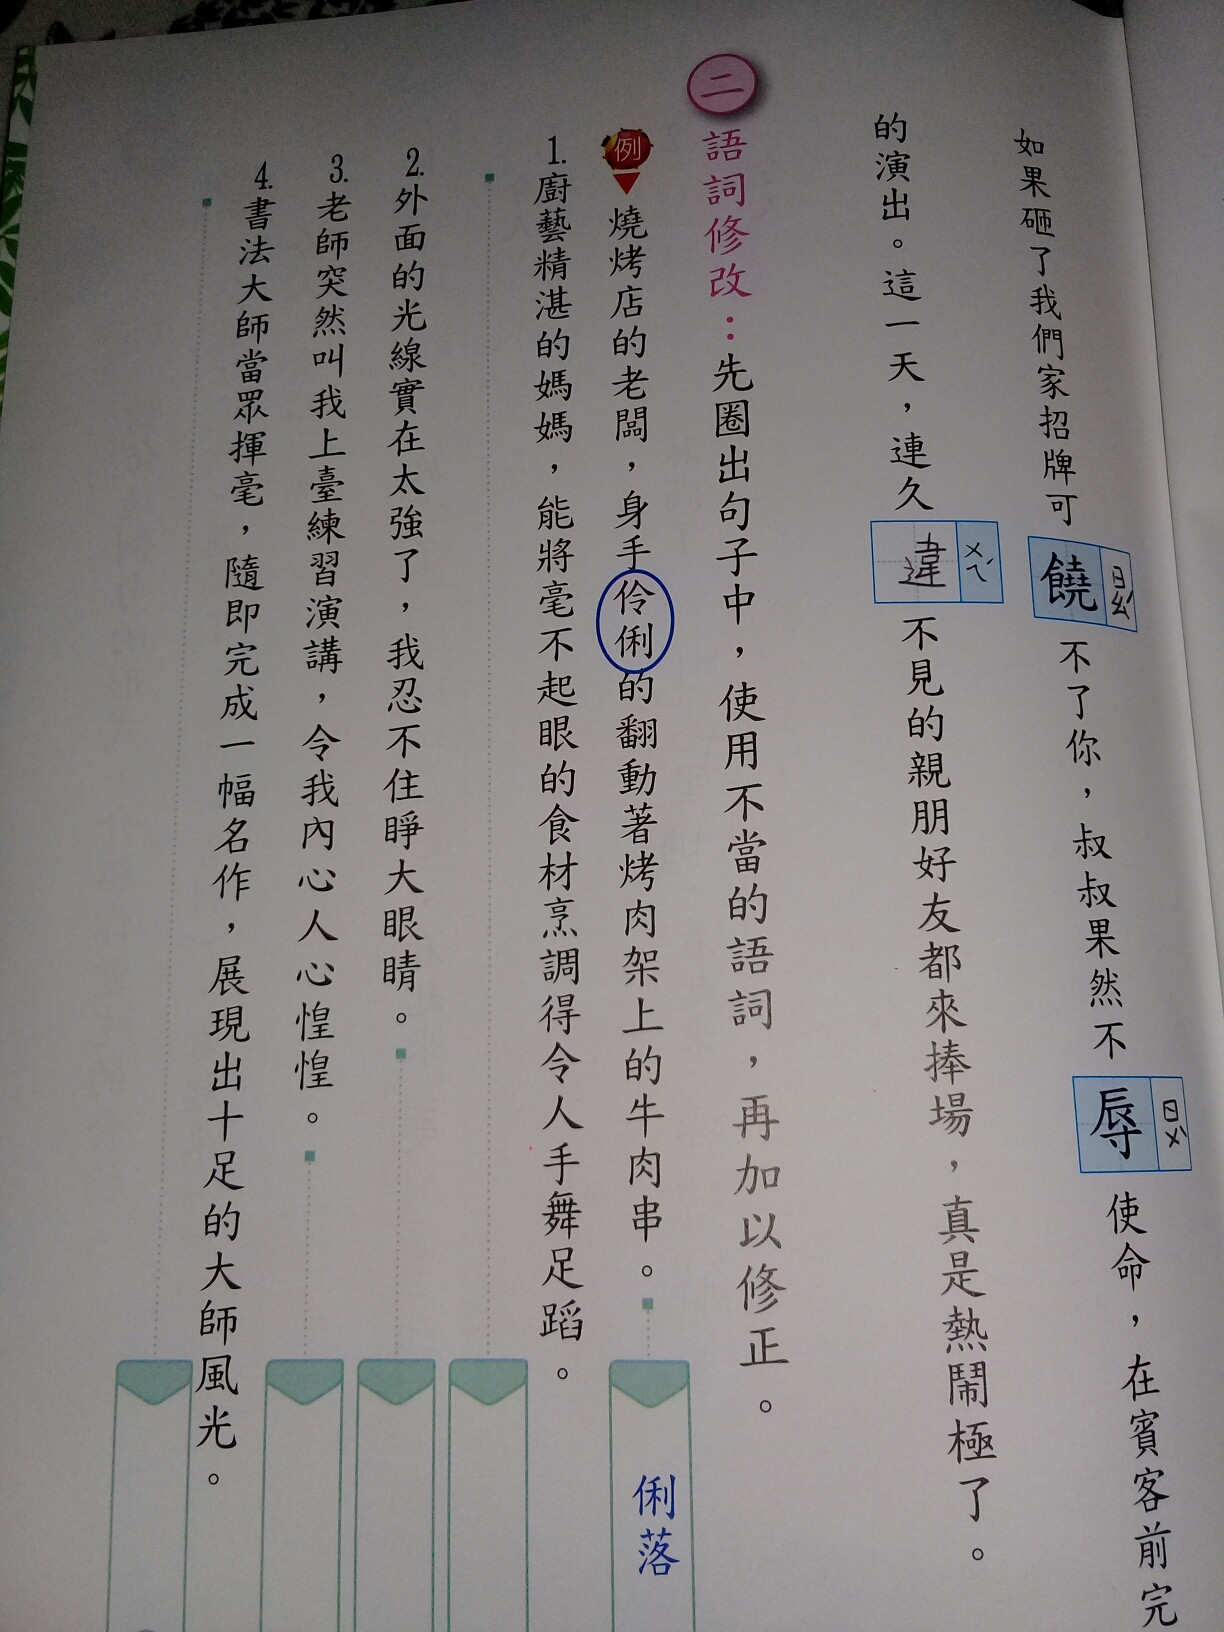 如果砸了我們家招牌可饒ㄖㄠˊ不了你，叔叔果然不辱ㄖㄨˋ使命，在賓客前完
的演出。這一天，連久違ㄨㄟˊ不見的親朋好友都來捧場，真是熱鬧極了。
二 語詞修改：先圈出句子中，使用不當的語詞，再加以修正。
例 燒烤店的老闆，身手伶俐的翻動著烤肉架上的牛肉串。 俐落
1.廚藝精湛的媽媽，能將毫不起眼的食材烹調得令人手舞足蹈。
2.外面的光線實在太強了，我忍不住睜大眼睛。
3.老師突然叫我上臺練習演講，令我內心人心惶惶。
4.書法大師當眾揮毫，隨即完成一幅名作，展現出十足的大師風光。